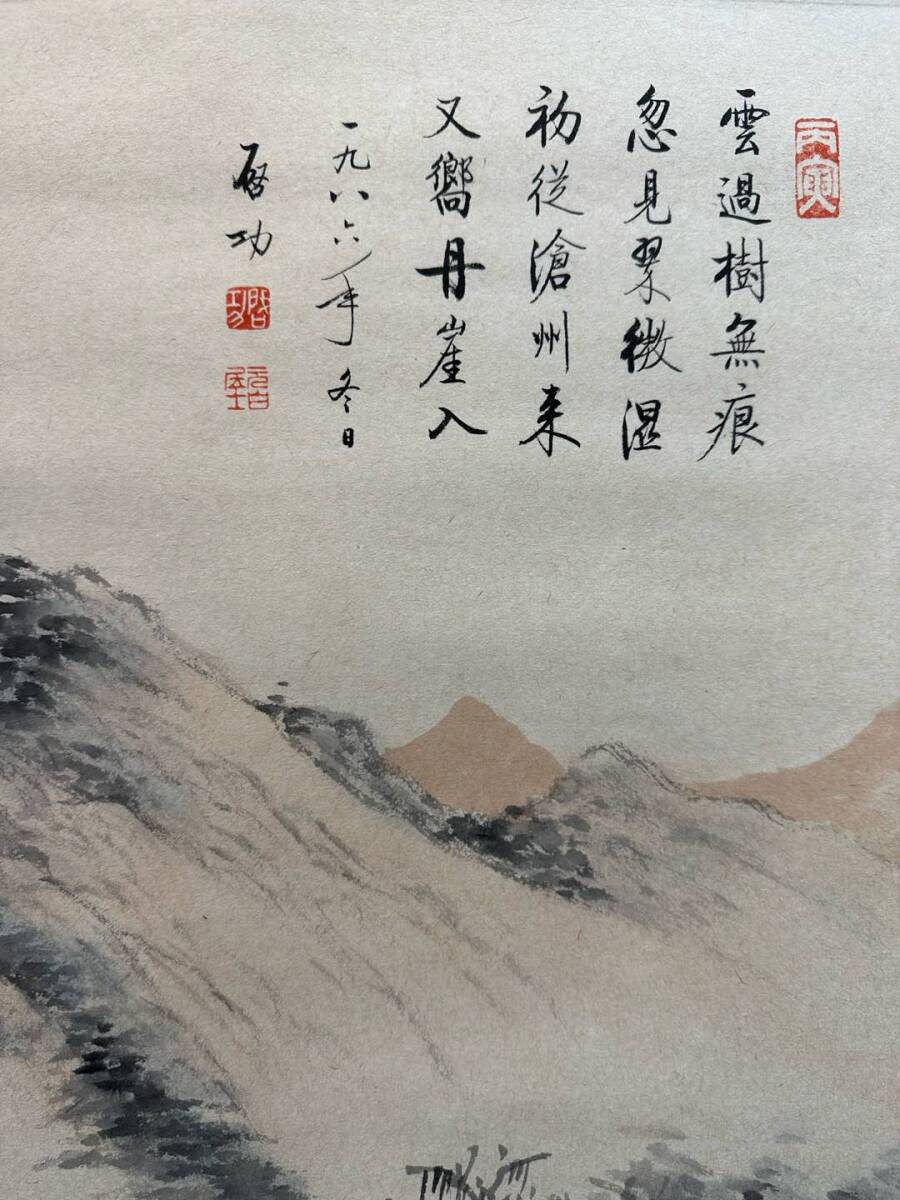 丙寅
雲過樹無痕
忽見翠微濕
初從滄州来
又嚮丹崖入
一九八六年冬日
啓功
啓功
元白